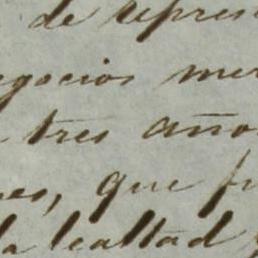 de repres
egocios mer
tres años
nes, que f
la lealtad y